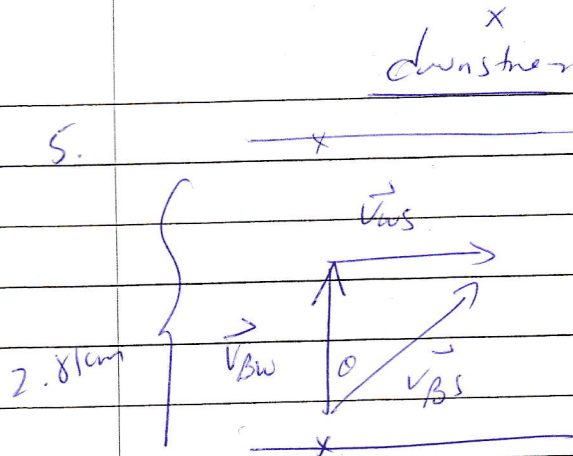 x
downstrea
5.
x
v⃗ws
2.81km
v⃗Bw
θ
v⃗Bs
x